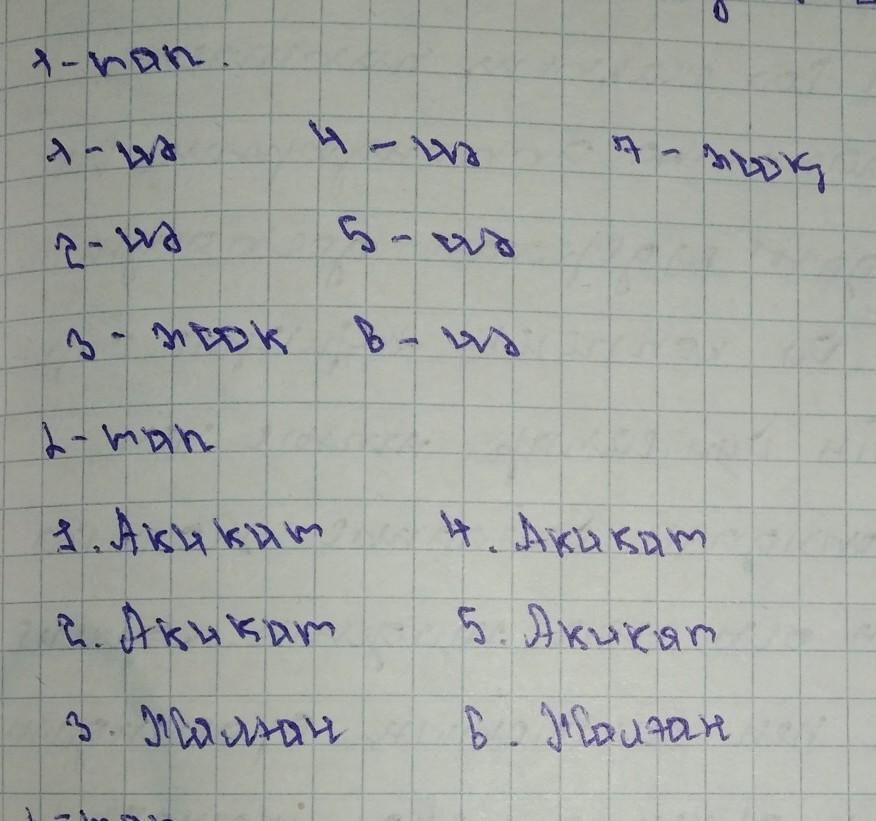 1-тап.
1 - иә 4 - иә 7 - жоқ
2 - иә 5 - иә
3 - жок 6 - иә
2-тап
1. Акикат 4. Акикат
2. Акикат 5. Акикат
3. Жалған 6. Жалған